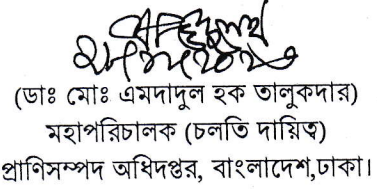 (ডাঃ মোঃ এমদাদুল হক তালুকদার)
মহাপরিচালক (চলতি দায়িত্ব)
প্রাণিসম্পদ অধিদপ্তর, বাংলাদেশ,ঢাকা।